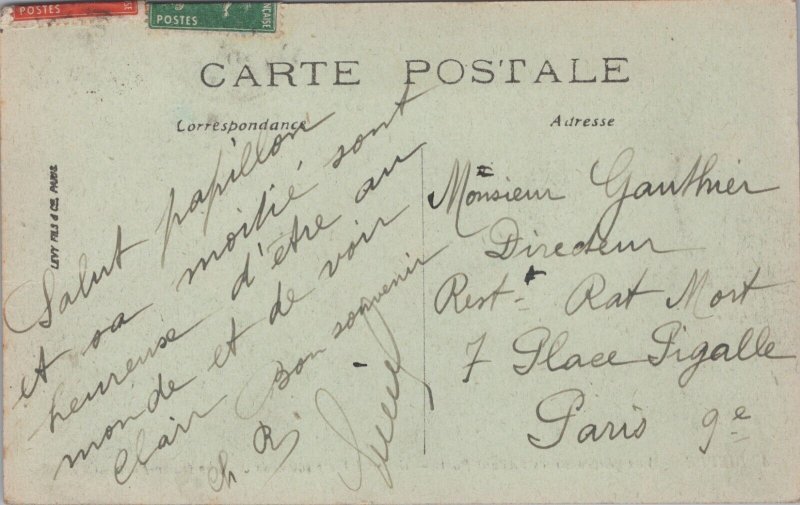 POSTES
POSTES
ÇAISE
CARTE POSTALE
Correspondance
Adresse
LEVY FILS & CIE, PARIS
Salut papillon
et sa moitié sont
heureuse d'être au
monde et de voir
clair Bon souvenir
Ch R
Monsieur Gauthier
Directeur
Rest-t Rat Mort
7 Place Pigalle
Paris 9e